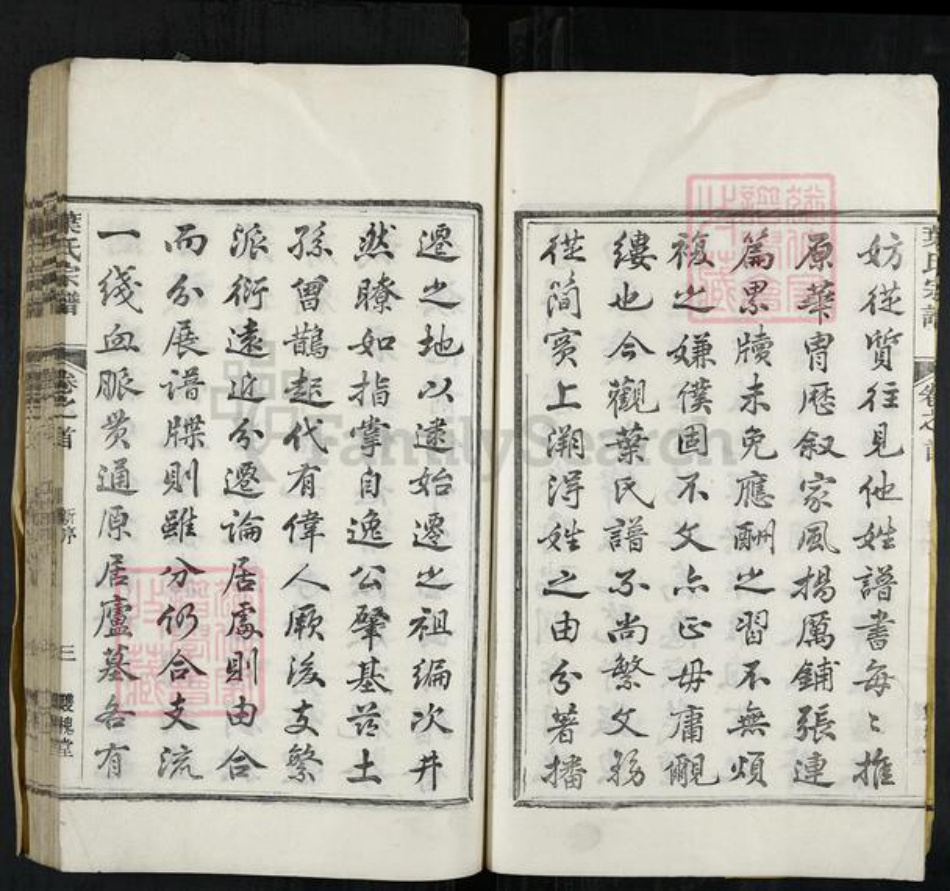 妨從質往見他姓譜書每〻推
原華胄歷叙家風揚厲鋪張連
篇累牘未免應酬之習不無煩
複之嫌僕固不文亦正毋庸覼
縷也今觀葉氏譜不尚繁文務
從簡實上溯得姓之由分著播
遷之地以逮始遷之祖編次井
然瞭如指掌自逸公肇基茲土
孫曾鵲起代有偉人厥後支繁
派衍遠近分遷論居處則由合
而分展譜牒則雖分仍合支流
一綫血脈贯通原居廬墓各有
葉氏宗譜
卷之首
新序
三
雙槐堂
葉氏宗譜
卷之首
FamilySearch